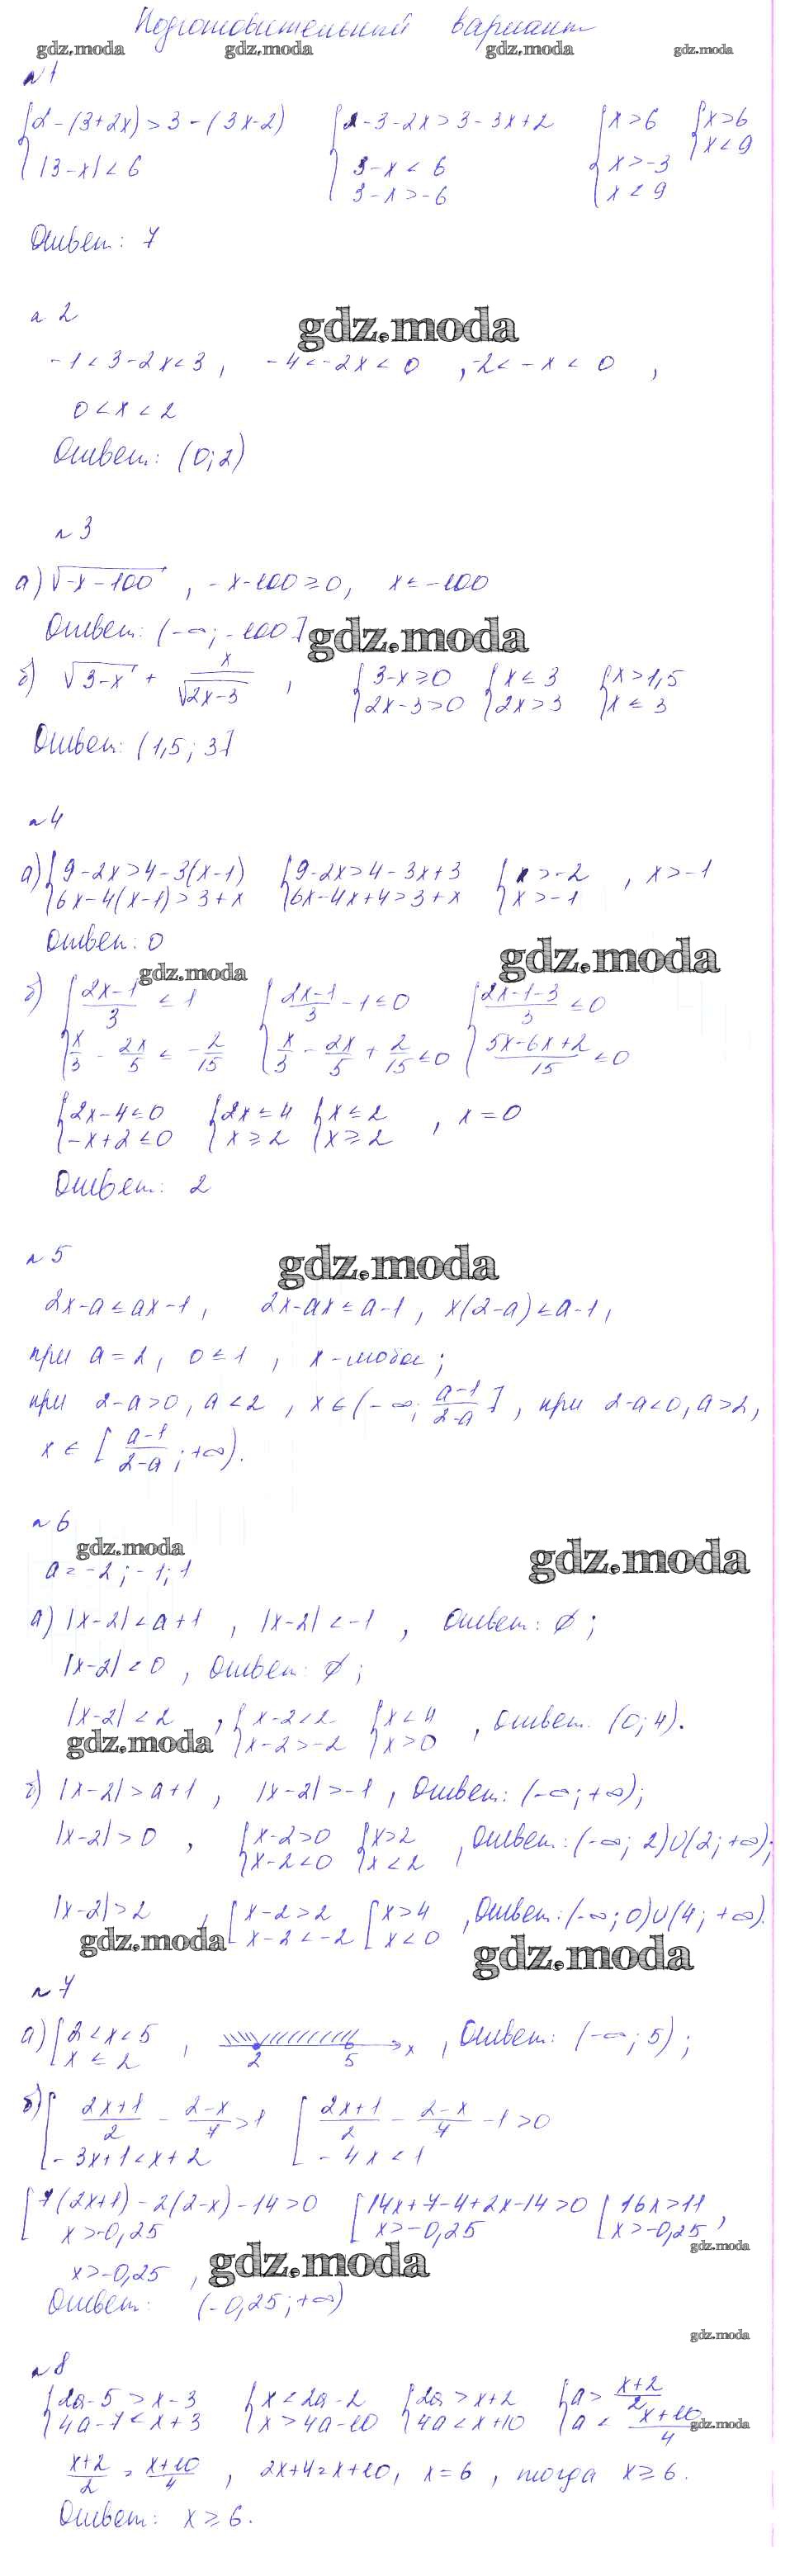 Подготовительный вариант
gdz.moda gdz.moda gdz.moda gdz.moda
№1
{2-(3+2x)>3-(3x-2) {2-3-2x>3-3x+2 {x>6 {x>6
|3-x|<6 3-x<6 x>-3 x<9
3-x>-6 x<9
Ответ: 7
№2
gdz.moda
-1<3-2x<3, -4<-2x<0, -2<-x<0,
0<x<2
Ответ: (0;2)
№3
а) √(-x-100), -x-100≥0, x≤-100
Ответ: (-∞; -100]
gdz.moda
б) √(3-x) + x/√(2x-3), {3-x≥0 {x≤3 {x>1,5
2x-3>0 2x>3 x≤3
Ответ: (1,5; 3]
№4
а) {9-2x>4-3(x-1) {9-2x>4-3x+3 {x>-2, x>-1
6x-4(x-1)>3+x 6x-4x+4>3+x x>-1
Ответ: 0
gdz.moda gdz.moda
б) {(2x-1)/3 ≤ 1 {(2x-1)/3 - 1≤0 {(2x-1-3)/3 ≤0
x/3 - 2x/5 ≤ -2/15 x/3 - 2x/5 + 2/15 ≤0 (5x-6x+2)/15 ≤0
{2x-4≤0 {2x≤4 {x≤2, x=0
-x+2≤0 x≥2 x≥2
Ответ: 2
№5
gdz.moda
2x-a≤ax-1, 2x-ax≤a-1, x(2-a)≤a-1,
при a=2, 0≤1, x-любое;
при 2-a>0, a<2, x∈(-∞; (a-1)/(2-a)], при 2-a<0, a>2,
x∈[(a-1)/(2-a); +∞).
№6
gdz.moda gdz.moda
a=-2; -1; 1
а) |x-2|<a+1, |x-2|<-1, Ответ: ∅;
|x-2|<0, Ответ: ∅;
|x-2|<2, {x-2<2 {x<4, Ответ: (0;4).
gdz.moda x-2>-2 x>0
б) |x-2|>a+1, |x-2|>-1, Ответ: (-∞; +∞);
|x-2|>0, {x-2>0 {x>2, Ответ: (-∞; 2)∪(2; +∞);
x-2<0 x<2
|x-2|>2, [x-2>2 [x>4, Ответ: (-∞; 0)∪(4; +∞).
gdz.moda x-2<-2 x<0
gdz.moda
№7
а) [2<x<5, Ответ: (-∞; 5);
x≤2 2 5 x
б) [(2x+1)/2 - (2-x)/7 >1 [(2x+1)/2 - (2-x)/7 -1>0
-3x+1<x+2 -4x<1
[7(2x+1)-2(2-x)-14>0 [14x+7-4+2x-14>0 [16x>11,
x>-0,25 x>-0,25 x>-0,25
gdz.moda
x>-0,25,
gdz.moda
Ответ: (-0,25; +∞)
gdz.moda
№8
{2a-5>x-3 {x<2a-2 {2a>x+2 {a>(x+2)/2
4a-7<x+3 x>4a-10 4a<x+10 a<(x+10)/4
gdz.moda
(x+2)/2 = (x+10)/4, 2x+4=x+10, x=6, тогда x≥6.
Ответ: x≥6.